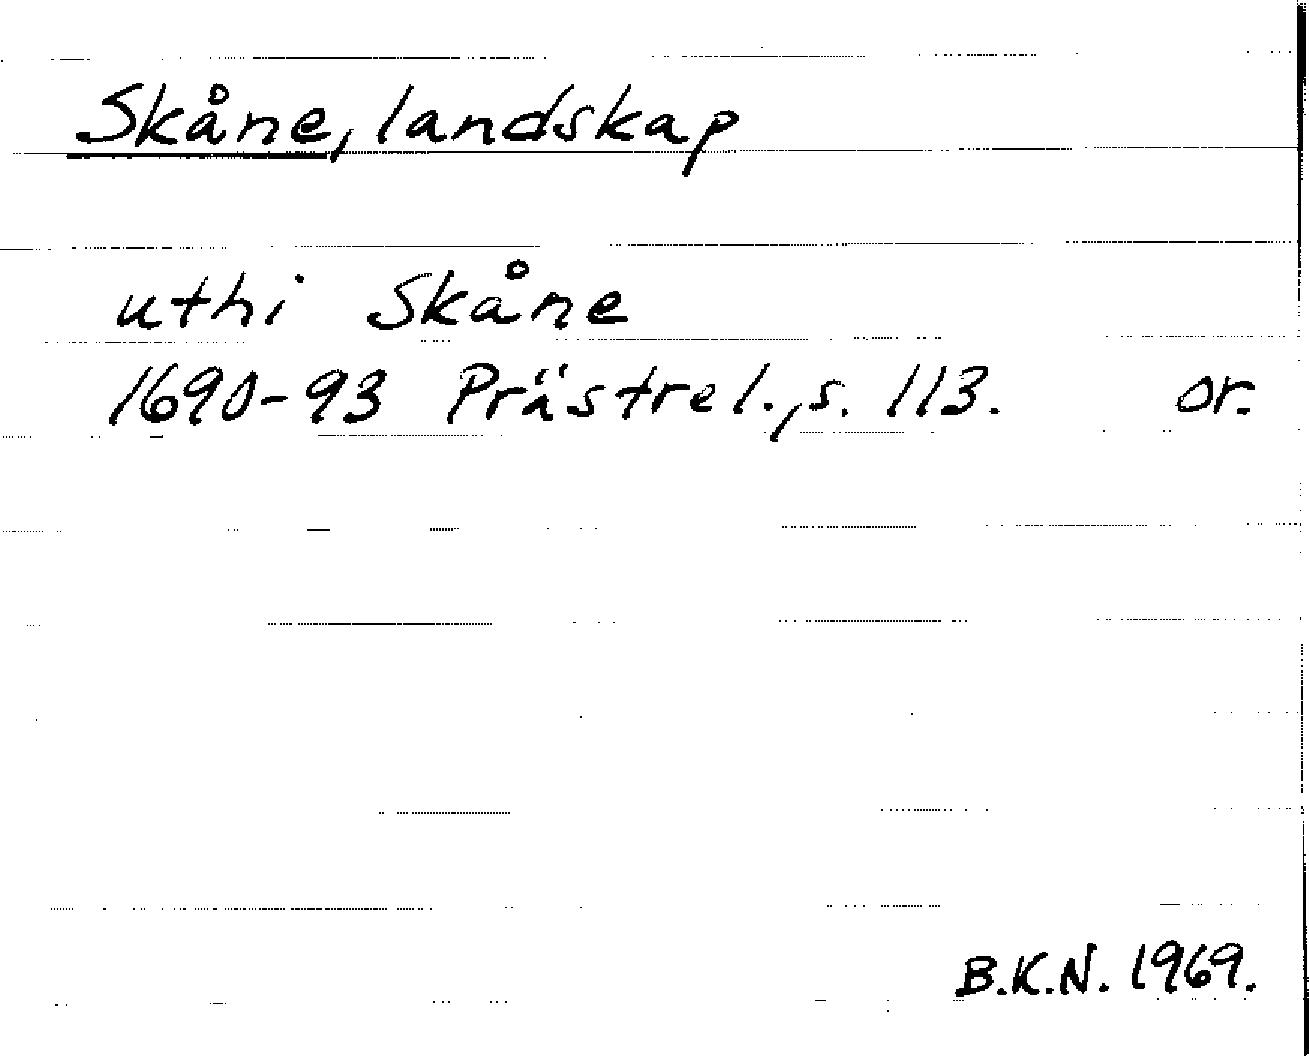 Skåne, landskap
uthi Skåne
1690-93 Prästrel., s. 113. or.
B.K.N. 1969.